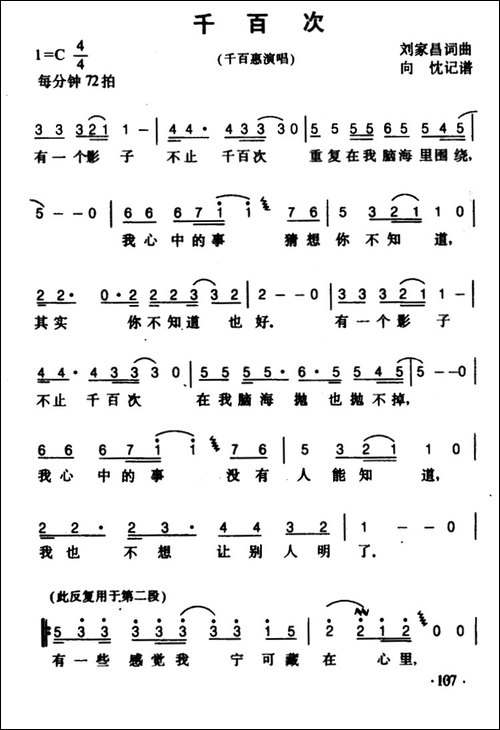 千百次
1=C 4/4
(千百惠演唱)
刘家昌词曲
每分钟 72拍
向 忱记谱
3 3 3 2 1 1 - | 4 4· 4 3 3 3 0 | 5 5 5 5 6 5 5 4 5 |
有一个影 子 不止 千百次 重复在我脑海里围绕,
5 - - 0 | 6 6 6 7 1 1 7 6 | 5 3 2 1 1 0 |
我心中的事 猜想你不知 道,
2 2· 0·2 2 2 3 3 2 | 2 - - 0 | 3 3 3 2 1 1 - |
其实 你不知道 也好. 有一个影 子
4 4· 4 3 3 3 3 0 | 5 5 5 5· 6· 5 5 4 5 | 5 - - 0 |
不止 千百次 在我脑海 抛 也抛不掉,
6 6 6 7 1 1 7 6 | 5 3 2 1 1 0 |
我心 中的事 没有人能知 道,
2 2· 2 3· 4 4 3 2 | 1 - - 0 |
我也 不想 让别人明了.
(此反复用于第二段)
5 3 3 3 3 3 3 3 3 1 5 | 2 2 1 2 0 0 |
有一些 感觉我 宁可藏在 心里,
·107·